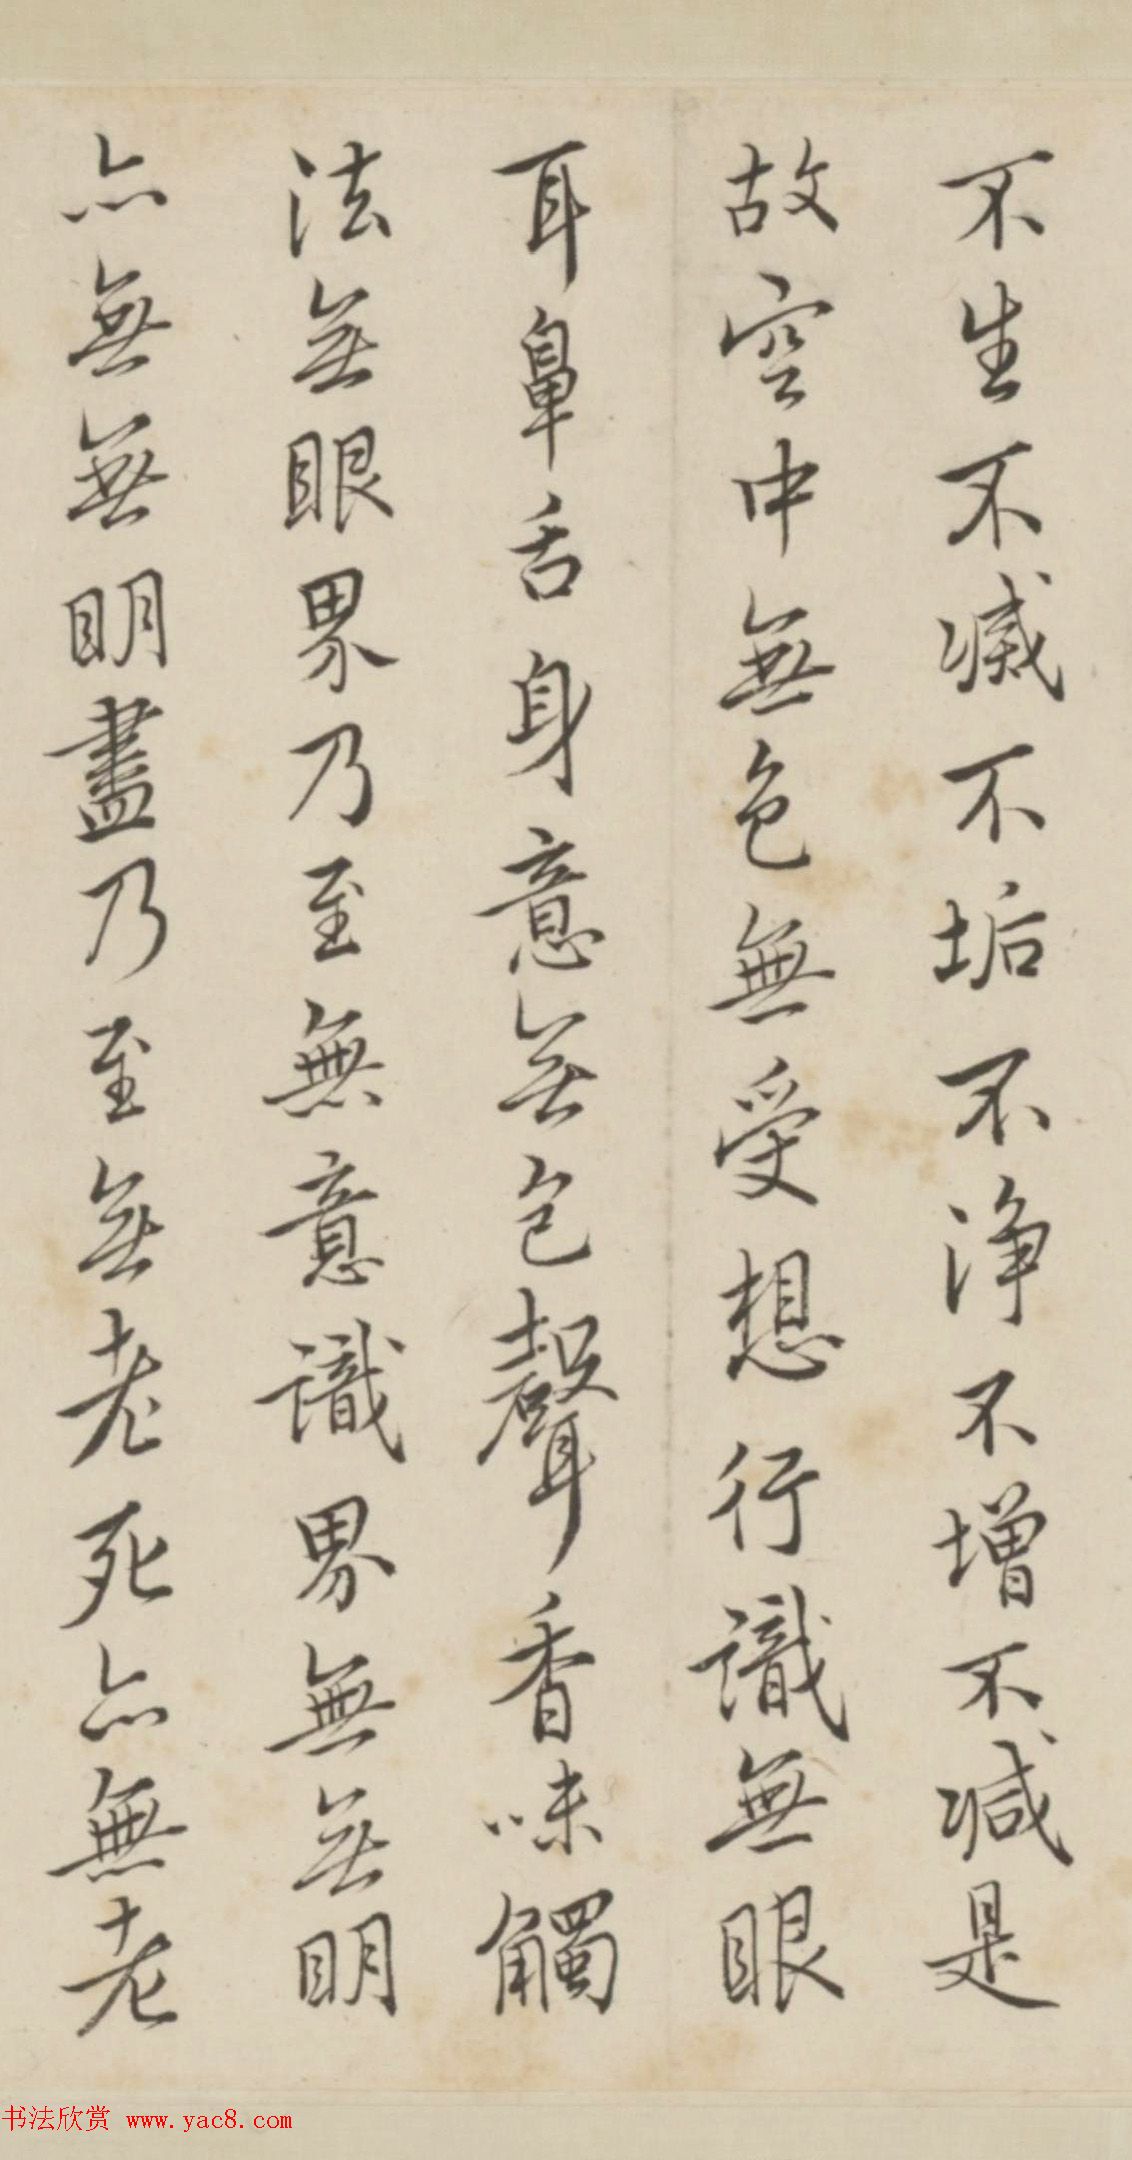 不生不滅不垢不淨不增不減是
故空中無色無受想行識無眼
耳鼻舌身意無色聲香味觸
法無眼界乃至無意識界無無明
亦無無明盡乃至無老死亦無老
书法欣赏 www.yac8.com